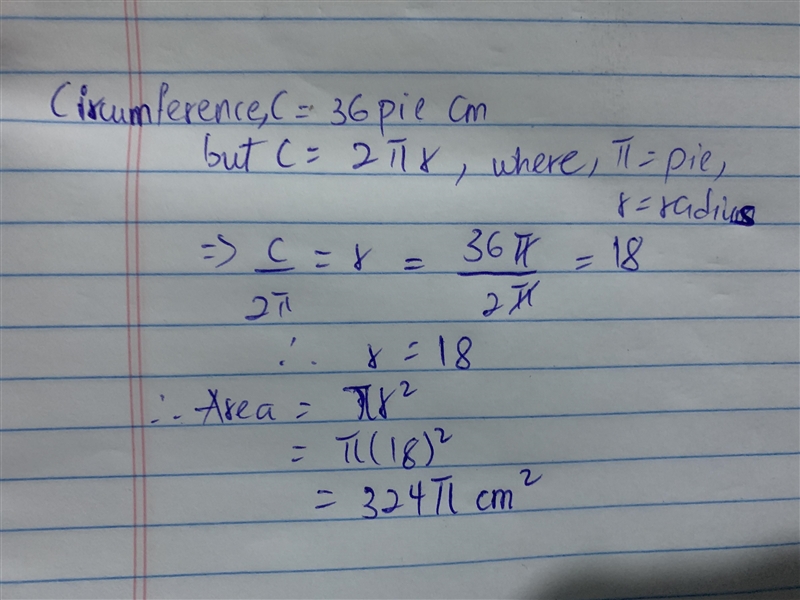 Circumference, C = 36 pie cm
but C = 2πr, where, π = pie,
r = radius
⇒ C/2π = r = 36π/2π = 18
∴ r = 18
∴ Area = πr²
= π(18)²
= 324π cm²